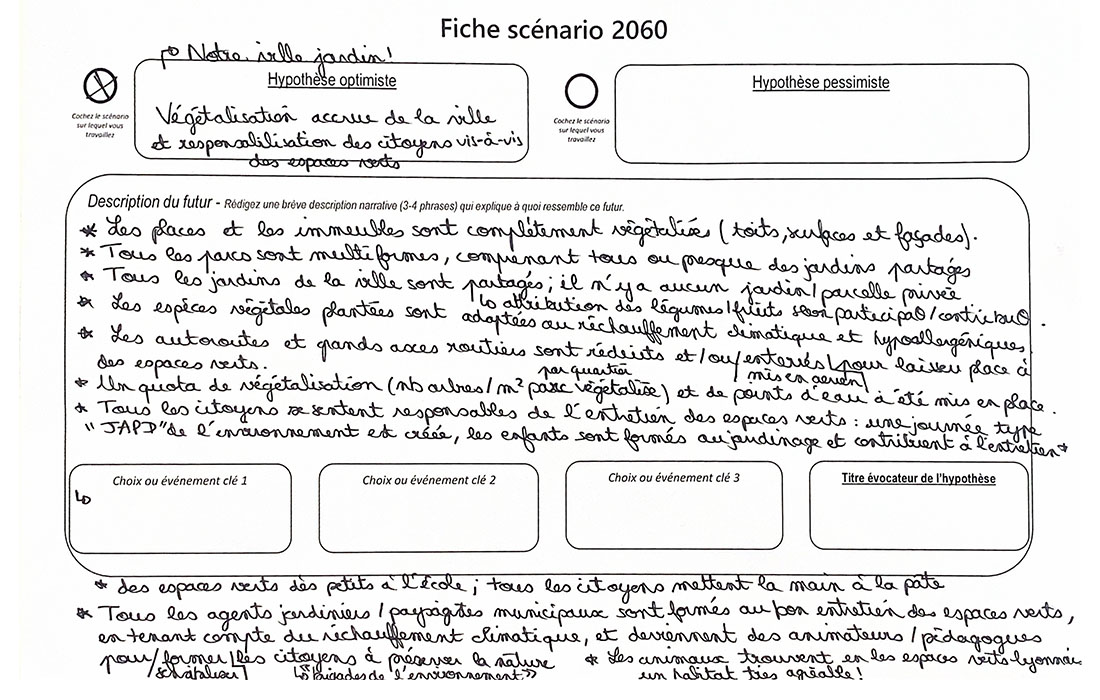 Fiche scénario 2060
↱ Notre ville jardin!
Hypothèse optimiste
Hypothèse pessimiste
Cochez le scénario sur lequel vous travaillez
Cochez le scénario sur lequel vous travaillez
Végétalisation accrue de la ville
et responsabilisation des citoyens vis-à-vis
des espaces verts
Description du futur - Rédigez une brève description narrative (3-4 phrases) qui explique à quoi ressemble ce futur.
* Les places et les immeubles sont complètement végétalisés (toits, surfaces et façades).
* Tous les parcs sont multiformes, comprenant tous ou presque des jardins partagés
* Tous les jardins de la ville sont partagés; il n'y a aucun jardin/parcelle privée
↳ attribution des légumes/fruits selon participa°/contribu°.
* Les espèces végétales plantées sont adaptées au réchauffement climatique et hypoallergéniques
* Les autoroutes et grands axes routiers sont réduits et/ou/enterrés/pour laisser place à
mis en aérien
des espaces verts.
par quartier
* Un quota de végétalisation (nb arbres/m² parc végétalisé) et de points d'eau à été mis en place.
* Tous les citoyens se sentent responsables de l'entretien des espaces verts : une journée type
"JAPD" de l'environnement est créée, les enfants sont formés au jardinage et contribuent à l'entretien*
Choix ou événement clé 1
Choix ou événement clé 2
Choix ou événement clé 3
Titre évocateur de l'hypothèse
↳
* des espaces verts dès petits à l'école; tous les citoyens mettent la main à la pâte
* Tous les agents jardiniers/paysagistes municipaux sont formés au bon entretien des espaces verts,
en tenant compte du réchauffement climatique, et deviennent des animateurs/pédagogues
pour/former/les citoyens à préserver la nature
sensibiliser
↳ "brigades de l'environnement"
* Les animaux trouvent en les espaces verts lyonnais
un habitat très agréable!